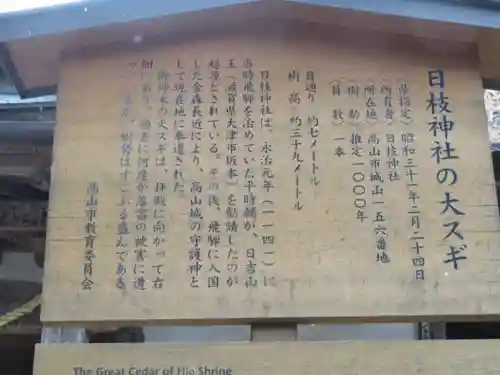 日枝神社の大スギ
(県指定) 昭和三十一年二月二十四日
(所有者) 日枝神社
(所在地) 高山市城山一五六番地
(樹齢) 推定一〇〇〇年
(員数) 一本
目通り 約七メートル
樹高 約三十九メートル
日枝神社は、永治元年(一一四一)に
当時飛騨を治めていた平時輔が、日吉山
王(滋賀県大津市坂本)を勧請したのが
起源とされている。その後、飛騨に入国
した金森長近により、高山城の守護神と
して現在地に奉遷された。
御神木の大スギは、拝殿に向かって右
側にあり、過去に何度か落雷の被害に遭
つ
樹勢はすこぶる盛んである。
高山市教育委員会
The Great Cedar of Hie Shrine